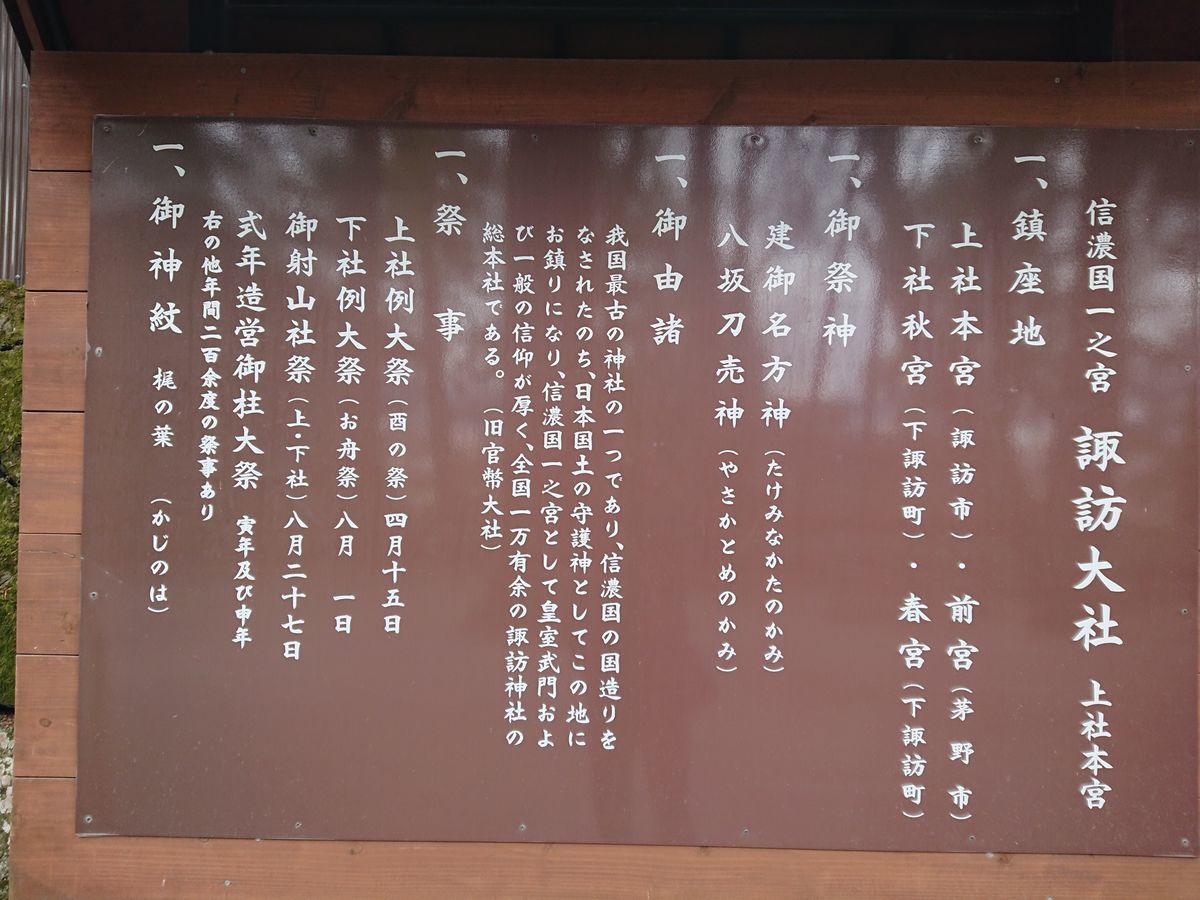 信濃国一之宮 諏訪大社 上社本宮
一、鎮座地
上社本宮（諏訪市）・前宮（茅野市）
下社秋宮（下諏訪町）・春宮（下諏訪町）
一、御祭神
建御名方神（たけみなかたのかみ）
八坂刀売神（やさかとめのかみ）
一、御由諸
我国最古の神社の一つであり、信濃国の国造りを
なされたのち、日本国土の守護神としてこの地に
お鎮りになり、信濃国一之宮として皇室武門およ
び一般の信仰が厚く、全国一万有余の諏訪神社の
総本社である。（旧官幣大社）
一、祭事
上社例大祭（酉の祭）四月十五日
下社例大祭（お舟祭）八月一日
御射山社祭（上・下社）八月二十七日
式年造営御柱大祭 寅年及び申年
右の他年間二百余度の祭事あり
一、御神紋 梶の葉（かじのは）